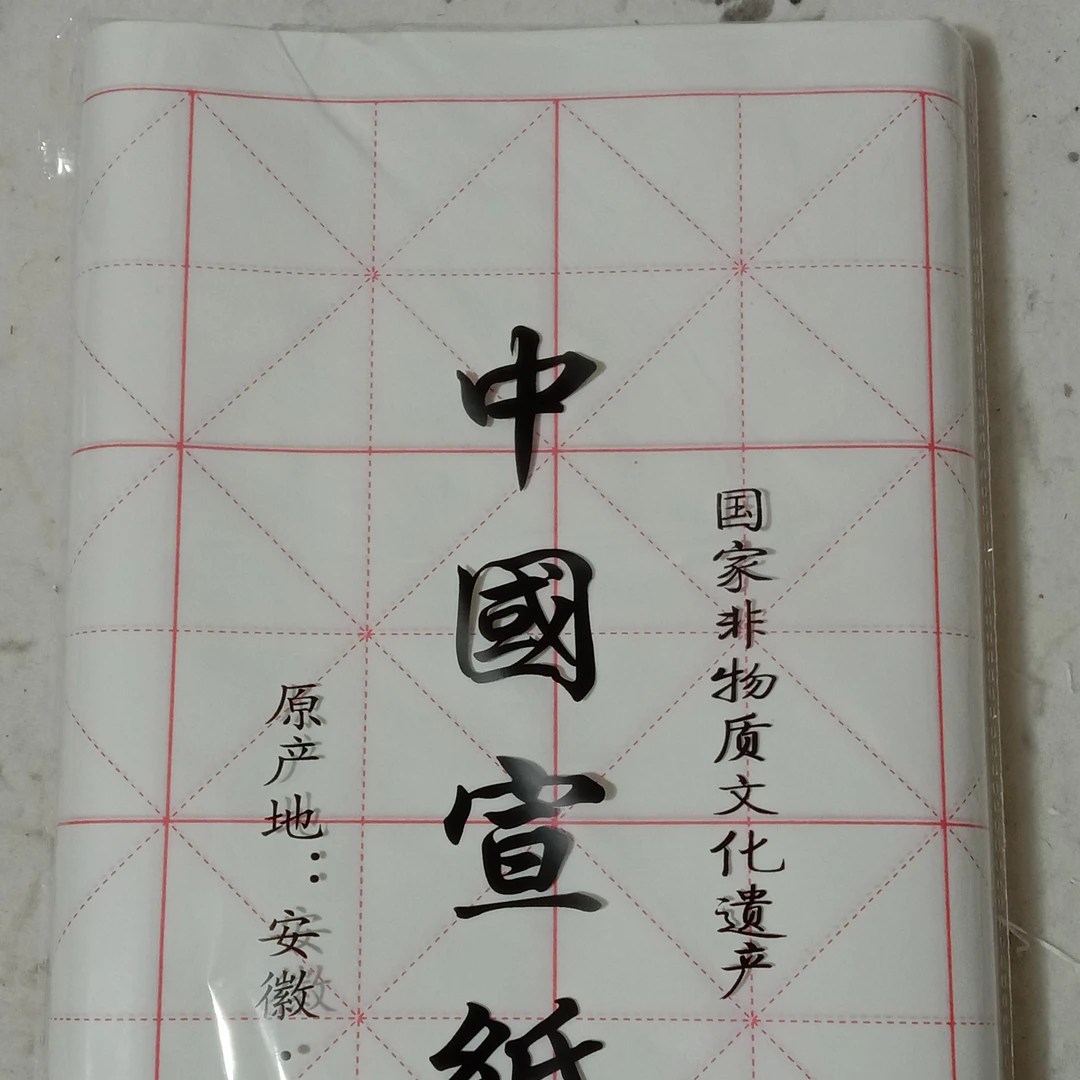 国家非物质文化遗产
中國宣紙
原产地：安徽